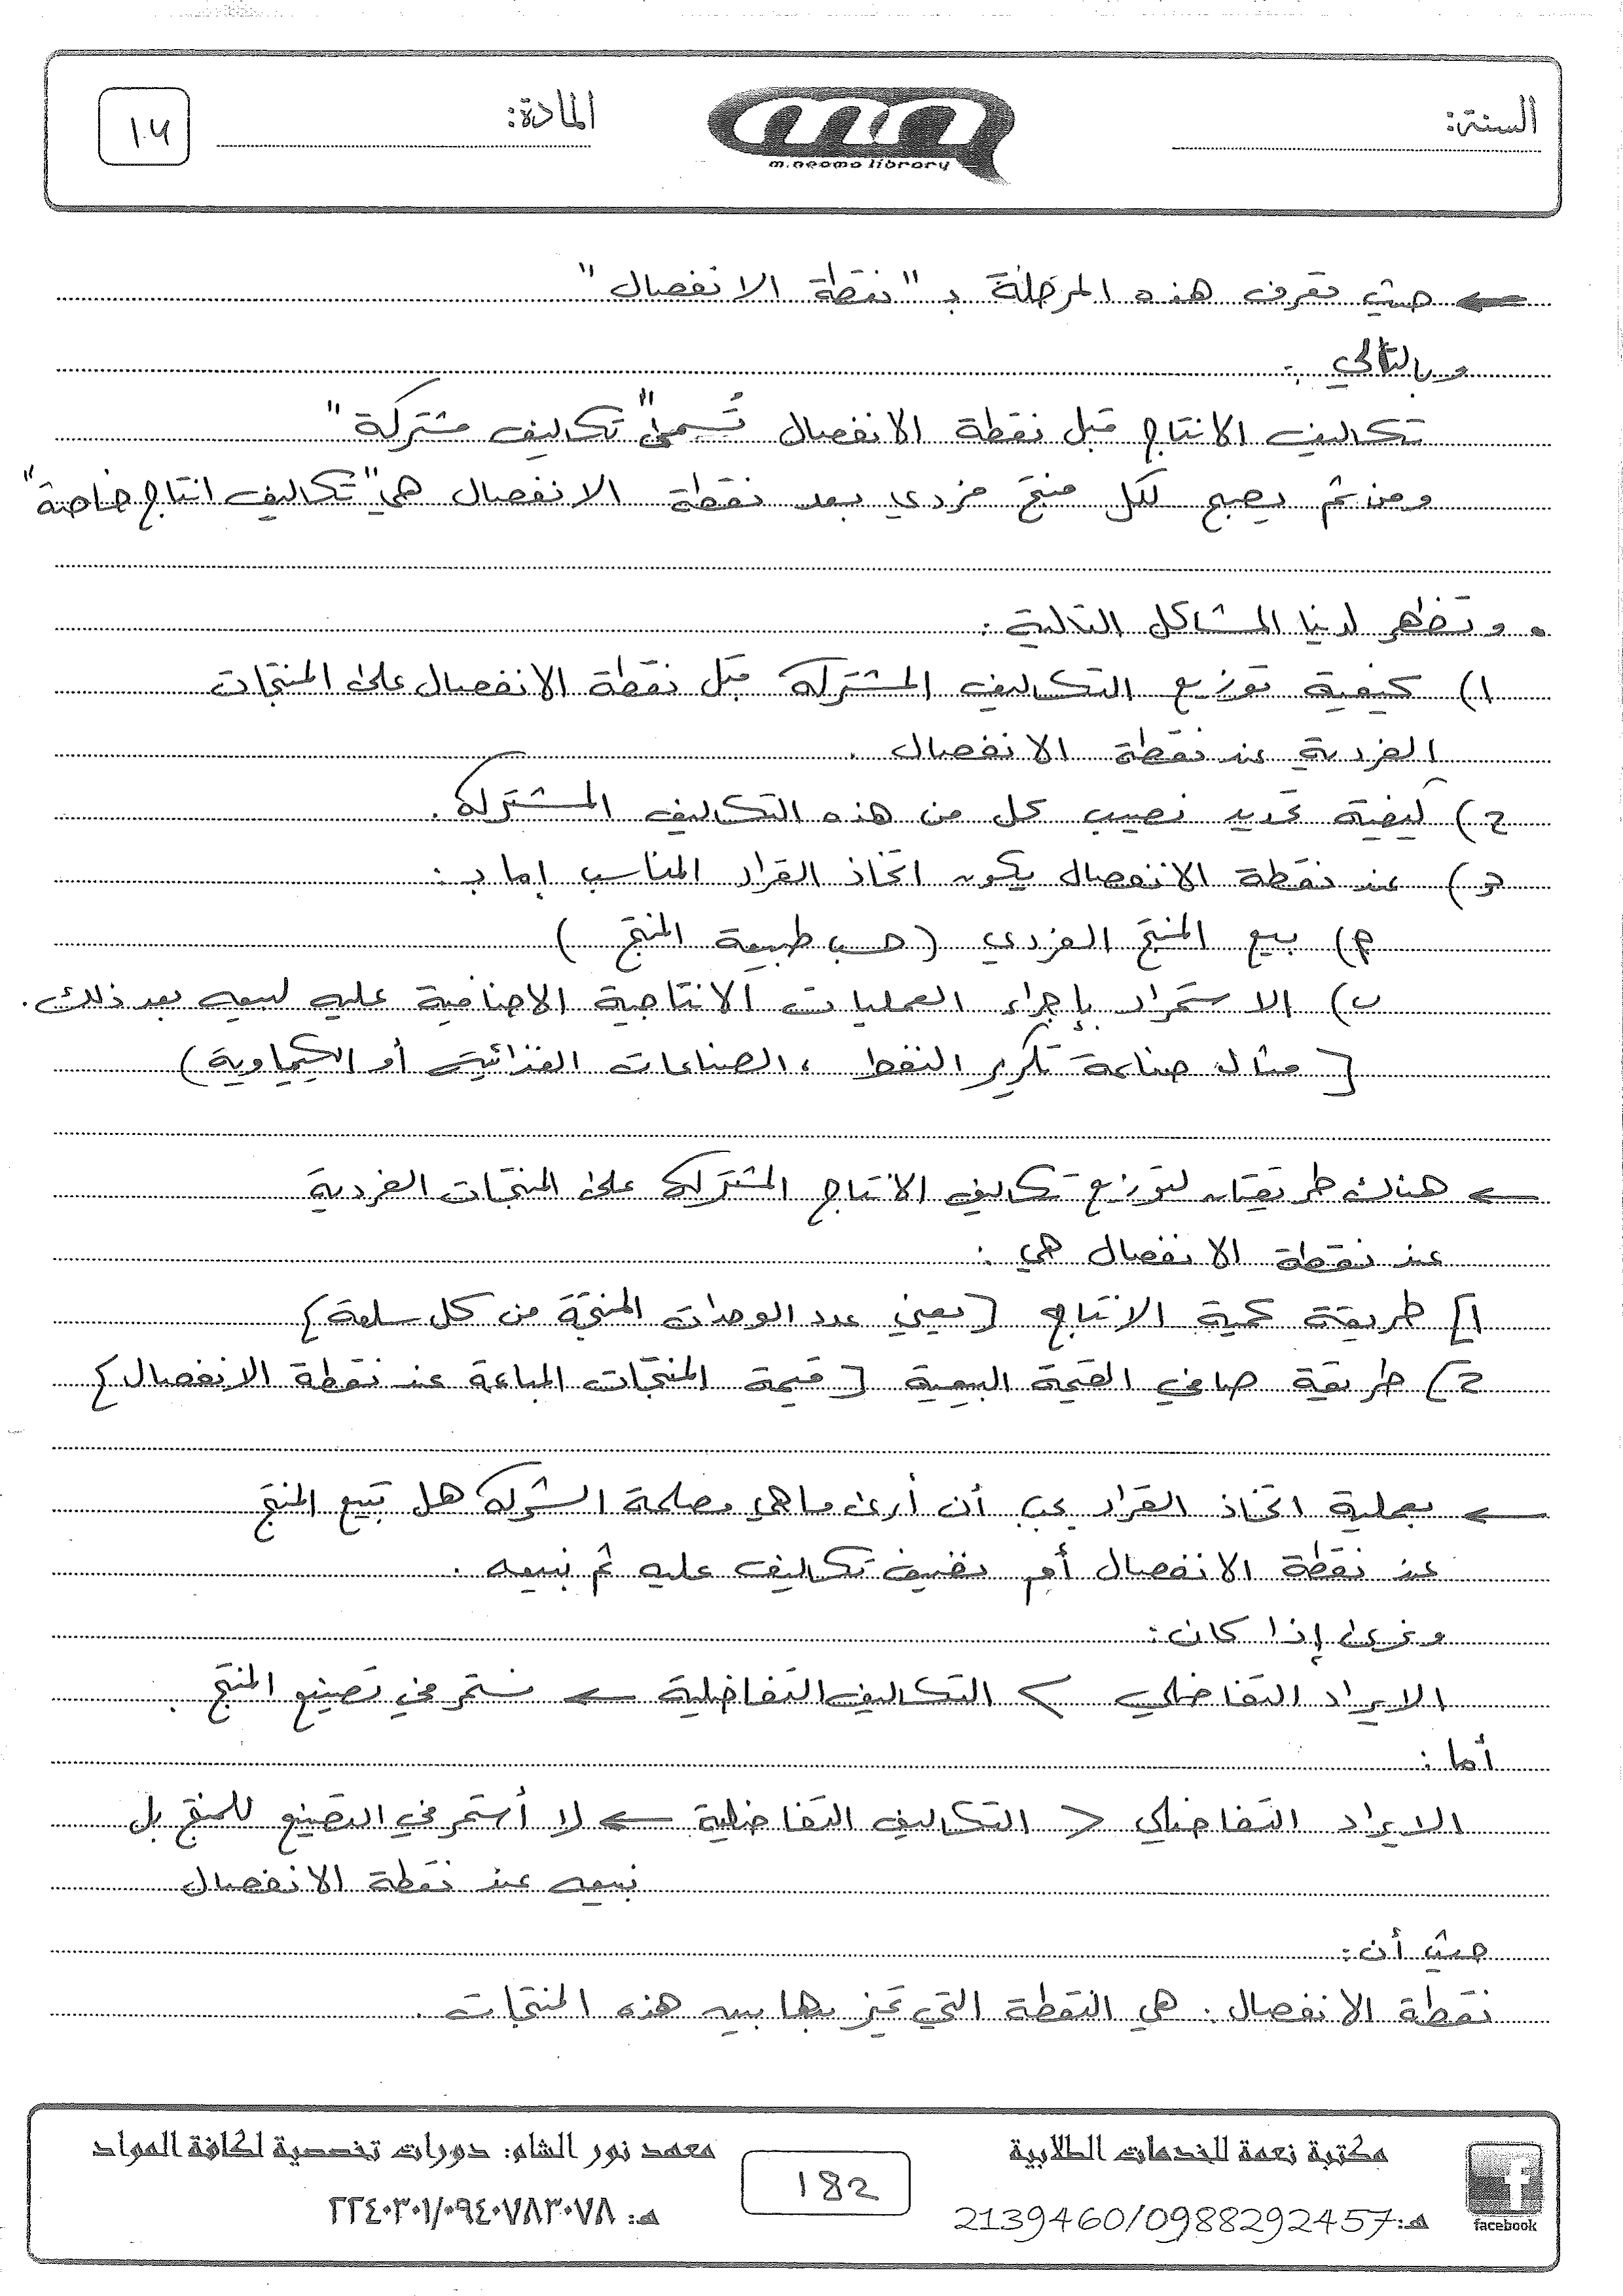 السنة:
m.neama library
المادة:
← حيث تعرف هذه المرحلة بـ "نقطة الانفصال"
وبالتالي :
تكاليف الانتاج قبل نقطة الانفصال تُسمى "تكاليف مشتركة"
ومن ثم يصبح لكل منتج فردي بعد نقطة الانفصال هي "تكاليف انتاج خاصة"
• وتظهر لدينا المشاكل التالية :
1) كيفية توزيع التكاليف المشتركة قبل نقطة الانفصال على المنتجات
الفردية عند نقطة الانفصال .
2) كيفية تحديد نصيب كل من هذه التكاليف المشتركة .
3) عند نقطة الانفصال يكون اتخاذ القرار المناسب إما بـ :
م) بيع المنتج الفردي (حسب طبيعة المنتج)
ب) الاستمرار بإجراء العمليات الانتاجية الاضافية عليه لبيعه بعد ذلك .
[مثال صناعة تكرير النفط ، الصناعات الغذائية أو الكيماوية)
← هناك طريقتان لتوزيع تكاليف الانتاج المشتركة على المنتجات الفردية
عند نقطة الانفصال هي :
1] طريقة كمية الانتاج [يعني عدد الوحدات المنتجة من كل سلعة]
2) طريقة صافي القيمة البيعية [قيمة المنتجات المباعة عند نقطة الانفصال]
← بعملية اتخاذ القرار يجب أن أرى ما هي مصلحة الشركة هل تبيع المنتج
عند نقطة الانفصال أم نضيف تكاليف عليه ثم نبيعه .
ونرى إذا كان :
الايراد التفاضلي > التكاليف التفاضلية ← نستمر في تصنيع المنتج .
أما :
الايراد التفاضلي < التكاليف التفاضلية ← لا أستمر في التصنيع للمنتج بل
نبيعه عند نقطة الانفصال
حيث أن :
نقطة الانفصال : هي النقطة التي نميز بها بين هذه المنتجات .
مكتبة نعمة للخدمات الطلابية
هـ: 2139460/0988292457
facebook
182
معهد نور الشام: دورات تخصصية لكافة المواد
هـ: ٢٢٤٠٣٠١/٠٩٤٠٧٨٣٠٧٨